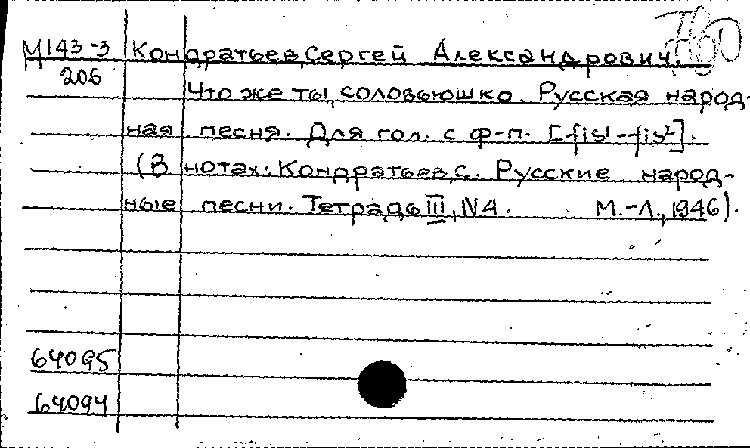 М143-3 Кондратьев, Сергей Александрович.
206 Что же ты, соловьюшко. Русская народ-
ная песня. Для гол. с ф-п. [fis¹-fis²].
(В нотах: Кондратьев, С. Русские народ-
ные песни. Тетрадь III, N4. М.-Л., 1946).
64095
64094